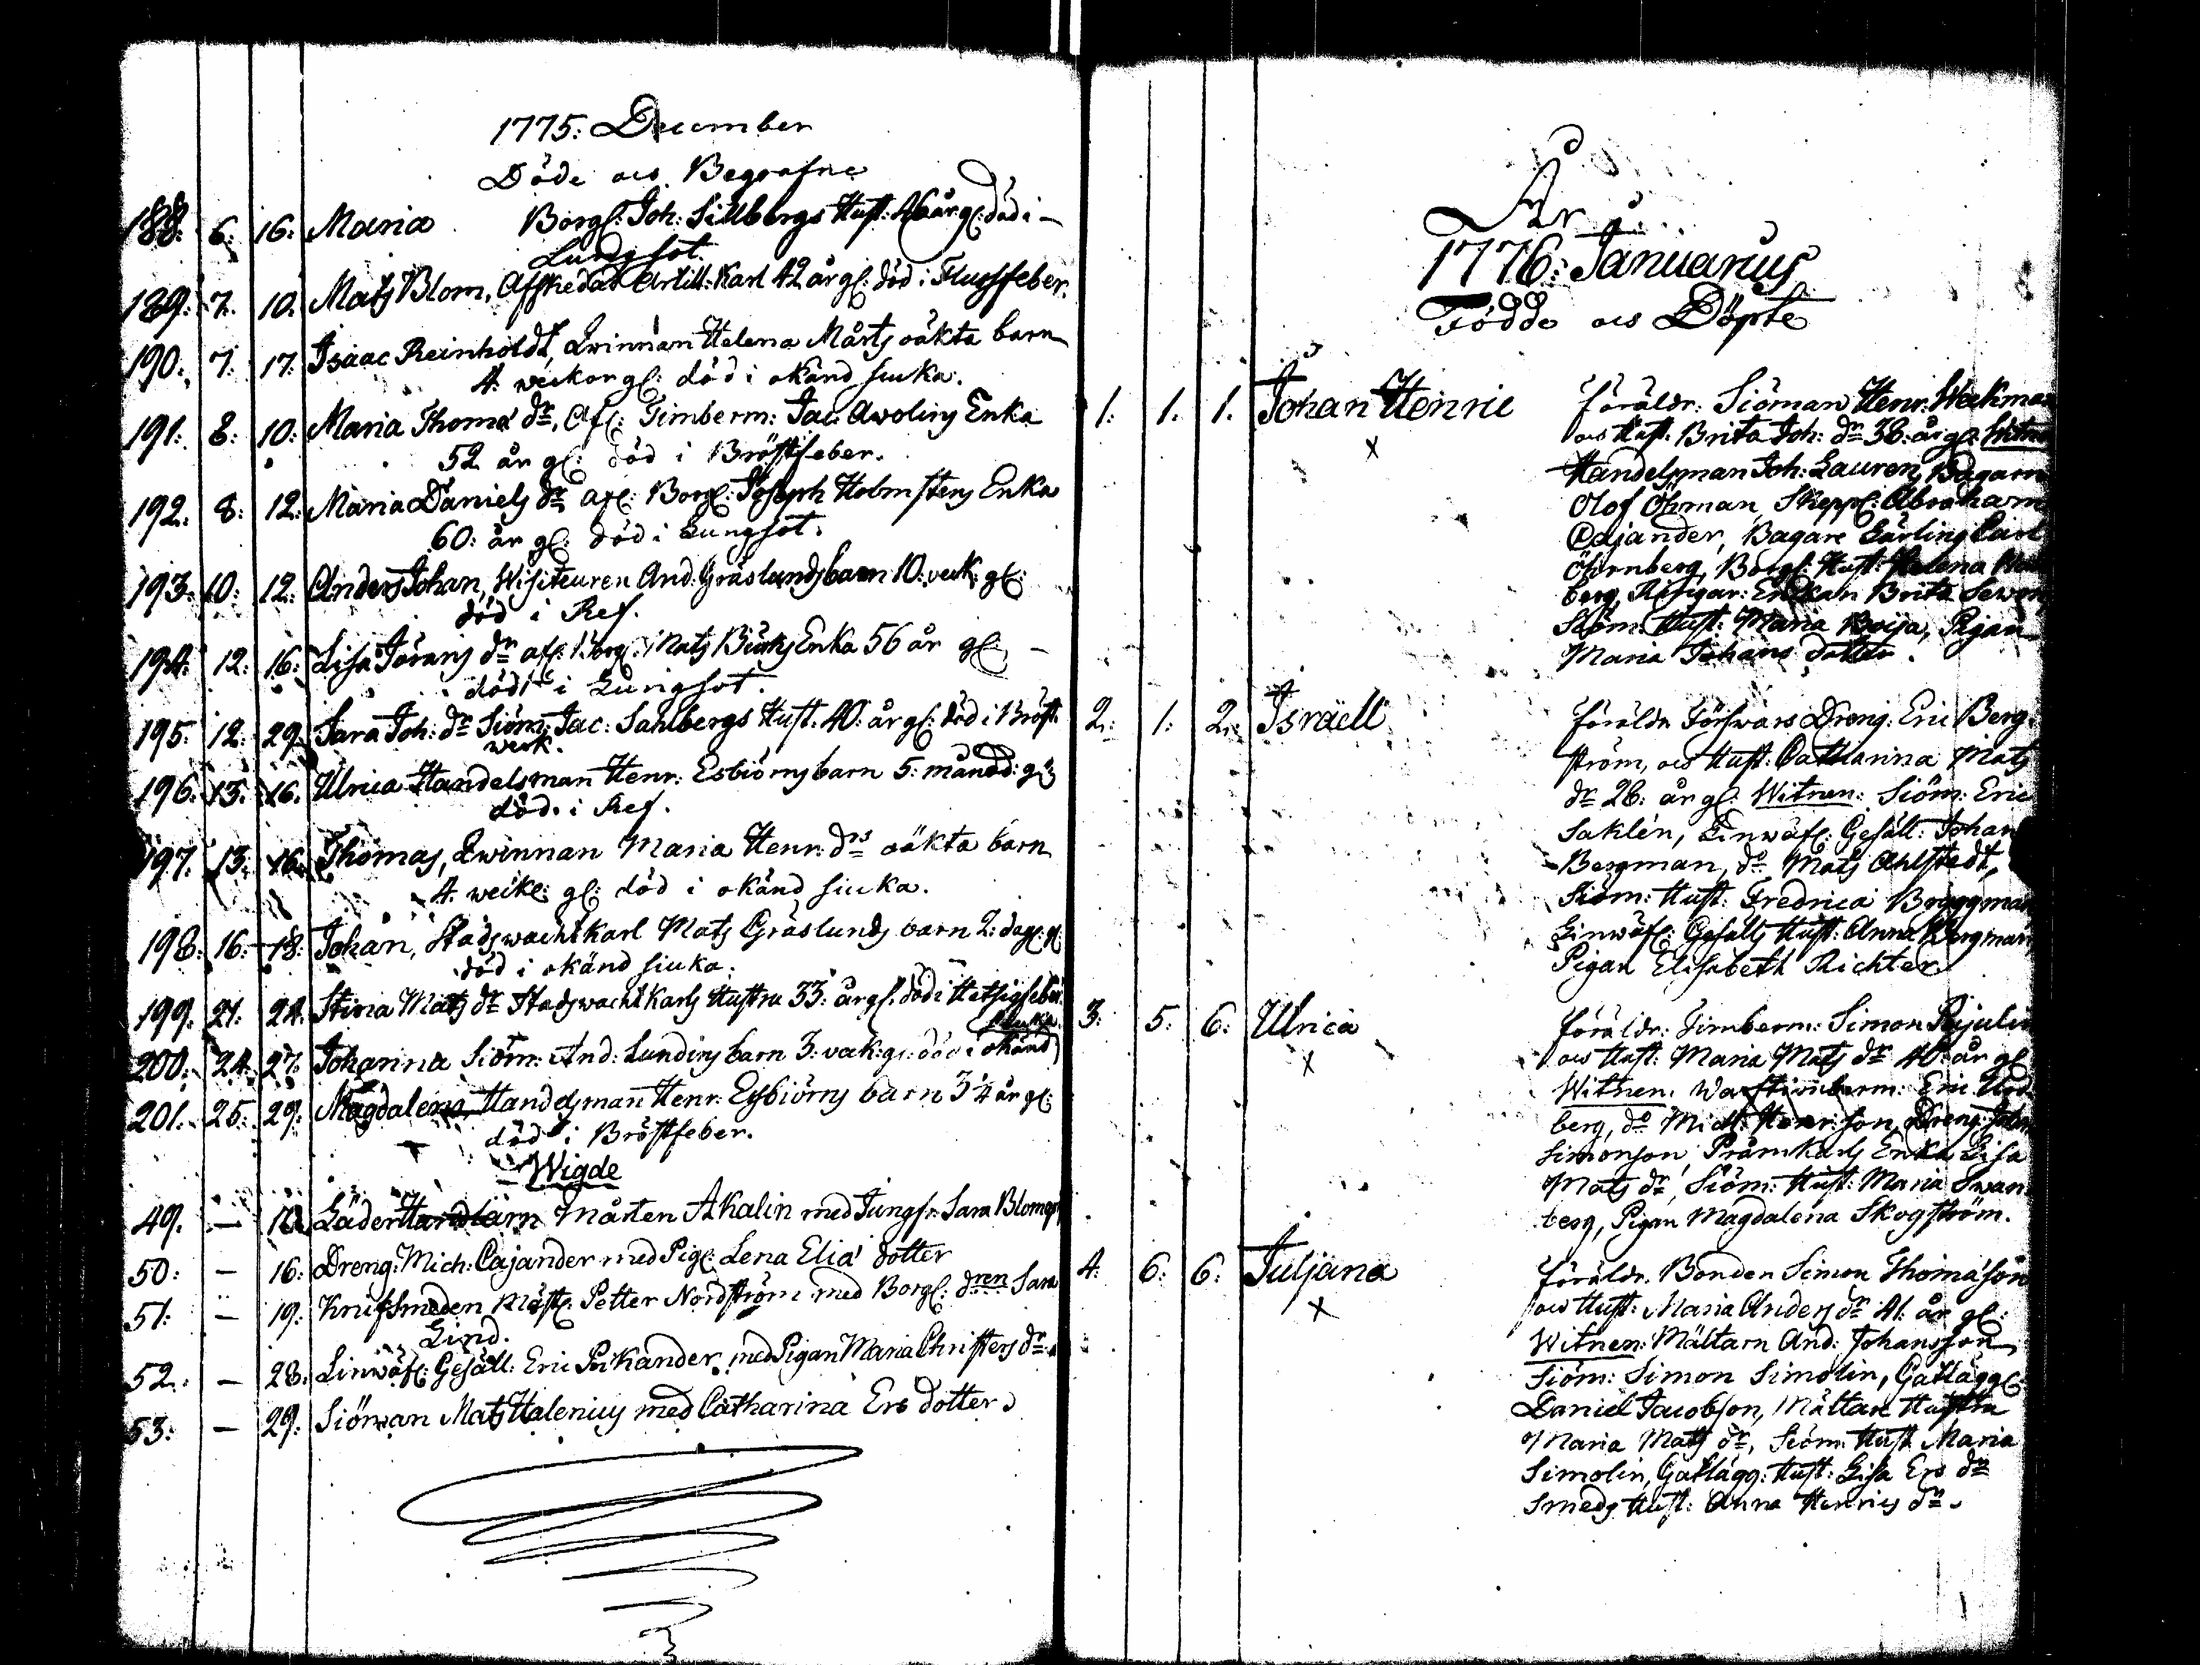 1775: December
Döde och Begrafne
188. 6. 16. Maria Borgl: Joh: Sillbergs Hust: 46 år gl: död i
Lungsot.
189. 7. 10. Mats Blom, Afskedad Artill: Karl 42 år gl: död i Flussfeber.
190. 7. 17. Isaac Reinholdt, Qvinnan Helena Mårts oäkta barn
4. weckor gl: död i okänd siuka.
191. 8. 10. Maria Thoma dr, Afl: Timberm: Jac: Awolins Enka
52 år gl: död i Bröstfeber.
192. 8. 12. Maria Daniels dr afl: Borgl: Joseph Holmstens Enka
60: år gl: död i Lungsot.
193. 10. 12. Anders Johan, Wisiteuren And: Gräslunds barn 10: veck: gl:
död i Ref.
194. 12. 16. Lisa Jörans dr afl: Borgl: Mats Enka 56 år gl:
död i Lungsot.
195. 12. 29. Sara Joh: dr Siöm: Jac: Sahlbergs Hust: 40: år gl: död i Bröst
werk.
196. 13. 16. Ulrica Handelsman Henr: Esbiörns barn 5: månad: gl:
död i Ref.
197. 13. 16. Thomas, Qwinnan Maria Henr: drs oäkta barn
4. weck: gl: död i okänd siuka.
198. 16. 18. Johan, Stadswacht Karl Mats Gräslunds barn 2: dag: gl:
död i okänd siuka.
199. 21. 24. Stina Mats dr Stadswacht Karls Hustru 33: år gl: död i Hetsig feber
200. 24. 27. Johanna Siöm: And: Lundins barn 3: veck: gl: död i okänd
siuka.
201. 25. 29. Magdalena, Handelsman Henr: Esbiörns barn 3 1/4 år gl:
död i Bröstfeber.
Wigde
49. — Mårten Akalin med Jungfr: Sara
50. — 16. Dreng: Mich: Cajander med Pig: Lena Elia dotter
51. — 19. Knifsmeden Mäst: Petter Nordström med Borgl: dren Sara
Lind.
52. — 28. Linwäf: Gesäll: Eric med Pigan Maria Christers dr
53. — 29. Siöman Mats Halenius med Catharina Ers dotter
År
1776: Januarius
Födde och Döpte
1. 1. 1. Johan Henric Föräldr: Siöman Henr: Wekman
x och Hust: Brita Joh: dr 38: år gl: Witn:
Handelsman Joh: Lauren, Bagarn
Olof Öhman, Skepp: Abraham
Cajander, Bagare Lärling Carl
Öhrnberg, Borgl: Hust: Helena
berg, Enkan Brita
Siöm: Hust: Maria Pigan
Maria Johans dotter.
2. 1. 2. Israell Föräldr Förswars Dreng: Eric Berg-
ström, och Hust: Catharina Mats
dr 26: år gl: Witnen: Siöm: Eric
Saklén, Linwäf: Gesäll: Johan
Bergman, do Mats Ahlstedt,
Siöm: Hust: Fredrica Bryggman
Linwäf: Gesälls Hust: Anna Bergman
Pigan Elisabeth Richter.
3. 5. 6. Ulrica Föräldr: Timberm: Simon
x och Hust: Maria Mats dr 40: år gl
Witnen. Warftimberm: Eric
berg, do Mich: Henr: son, Dreng: Joh:
Simonson Pråmkarls Enka Lisa
Mats dr, Siöm: Hust: Maria Swan
berg, Pigan Magdalena Skogström.
4. 6. 6. Juljana Föräldr. Bonden Simon Thoma son
x och Hust: Maria Anders dr 41. år gl:
Witnen: Mältarn And: Johansson
Siöm: Simon Simolin, Gatlägg:
Daniel Jacobson, Mältare Hustru
Maria Mats dr, Siöm: Hust Maria
Simolin, Gatlägg: Hust: Lisa Ers dr
Smeds Hust: Anna Henrics dr.